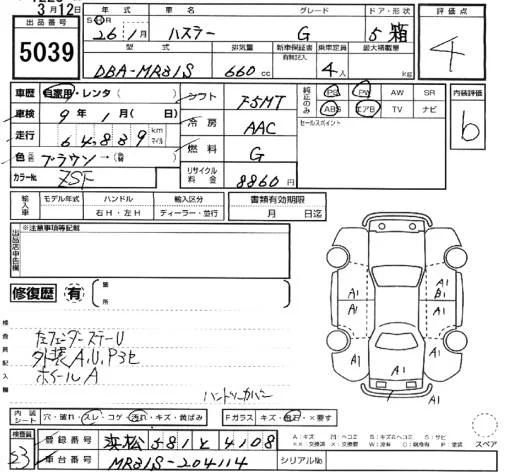 3月12日
出品番号 年式 車名 グレード ドア・形状 評価点
5039 S H R 26年1月 ハスラー G 5 箱 4
型式 排気量 新車保証書 乗車定員 最大積載量
有無記入
DBA-MR31S 660cc 4人 kg
車歴 自家用・レンタ ( ) シフト F5MT 純正のみ PS PW AW SR 内装評価
車検 9年1月(日) 冷房 AAC ABS エアB TV ナビ b
走行 64,839 km マイル 燃料 G セールスポイント
色 ブラウン→(替 )
カラーNo. ZSF リサイクル料金 8860円
輸入車 モデル年式 ハンドル 輸入区分 書類有効期限
右H・左H ディーラー・並行 月 日迄
出品店申告欄 ※注意事項等記載
修復歴 有 箇所
検査員記入欄
左フェンダーステーU
外装A.U.P3セ
ホイールA
A1 A1
A1 A1 B1
A1 A1
A1
内装シート 穴・破れ・スレ・コゲ・汚れ・キズ・黄ばみ Fガラス キズ・飛石・×要す スペア
検査員 登録番号 浜松581と4108
53 車台番号 MR31S-204114 シリアルNo.